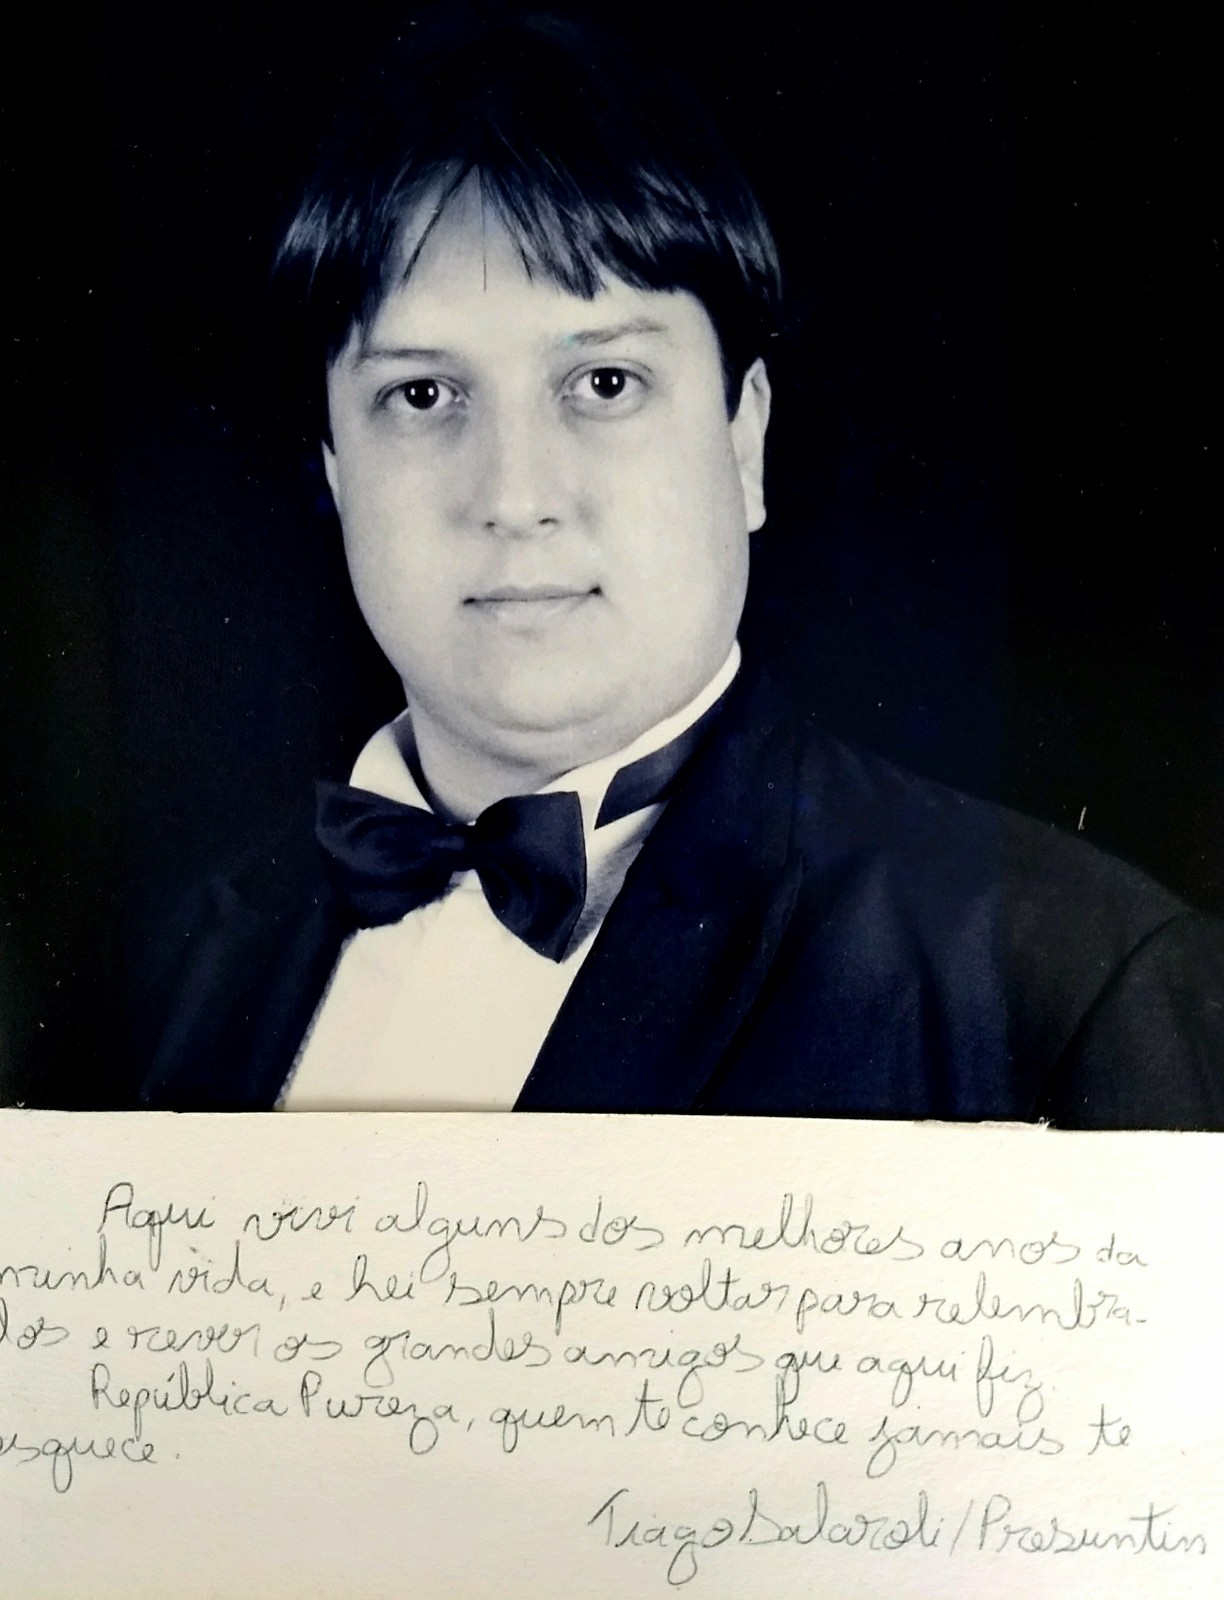 Aqui vivi alguns dos melhores anos da
minha vida, e hei sempre voltar para relembra-
los e rever os grandes amigos que aqui fiz.
República Pureza, quem te conhece jamais te
esquece.
Tiago Salaroli/Presuntin